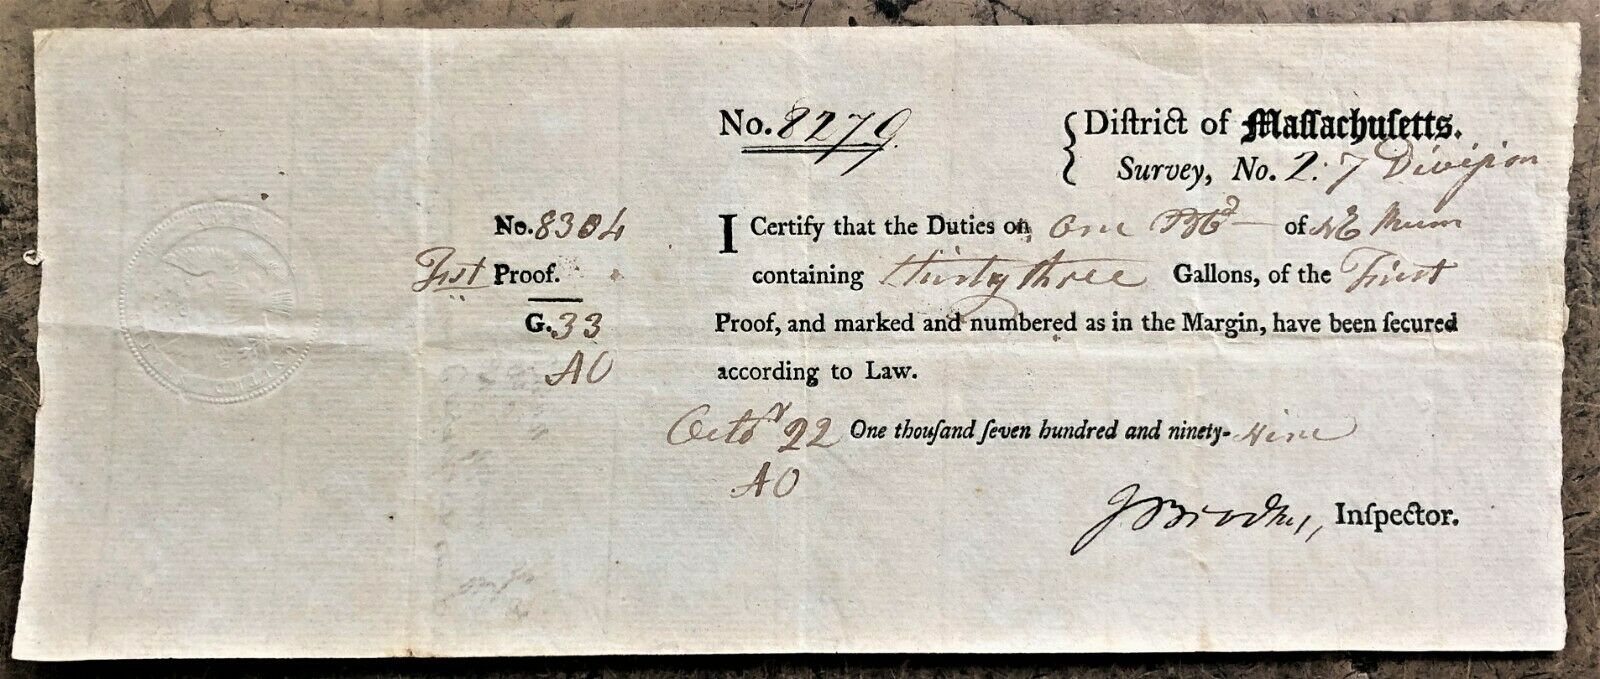 No. 8279.
Diſtrict of Maſſachuſetts.
Survey, No. 2. 7 Diviſion
No. 8304
First Proof.
G. 33
AO
I Certify that the Duties on One Bbl of NE Rum
containing thirty three Gallons, of the First
Proof, and marked and numbered as in the Margin, have been ſecured
according to Law.
Octor 22 One thouſand ſeven hundred and ninety-Nine
AO
Inſpector.